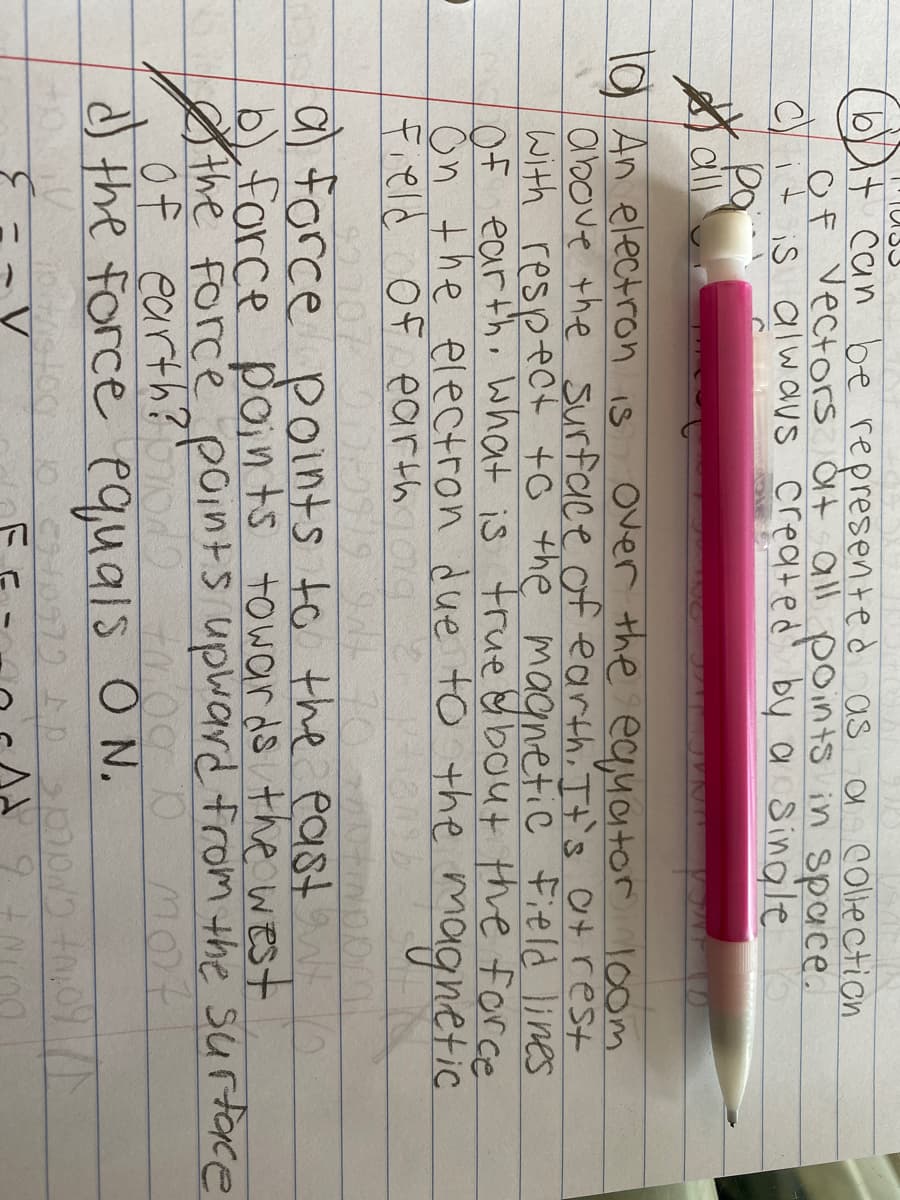 b) It can be represented as a collection
of vectors at all points in space.
c) it is always created by a single
d) all
10) An electron is over the equator 100m
above the surface of earth. It's at rest
with respect to the magnetic field lines
of earth. what is true about the force
On the electron due to the magnetic
field of earth
a) force points to the east
b) force points towards the west
c) the force points upward from the surface
of earth?
d) the force equals 0 N.